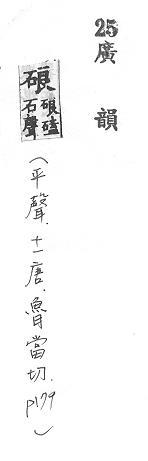 25 廣韻
硠 硠磕石聲
(平聲.十一唐.魯當切.p179)